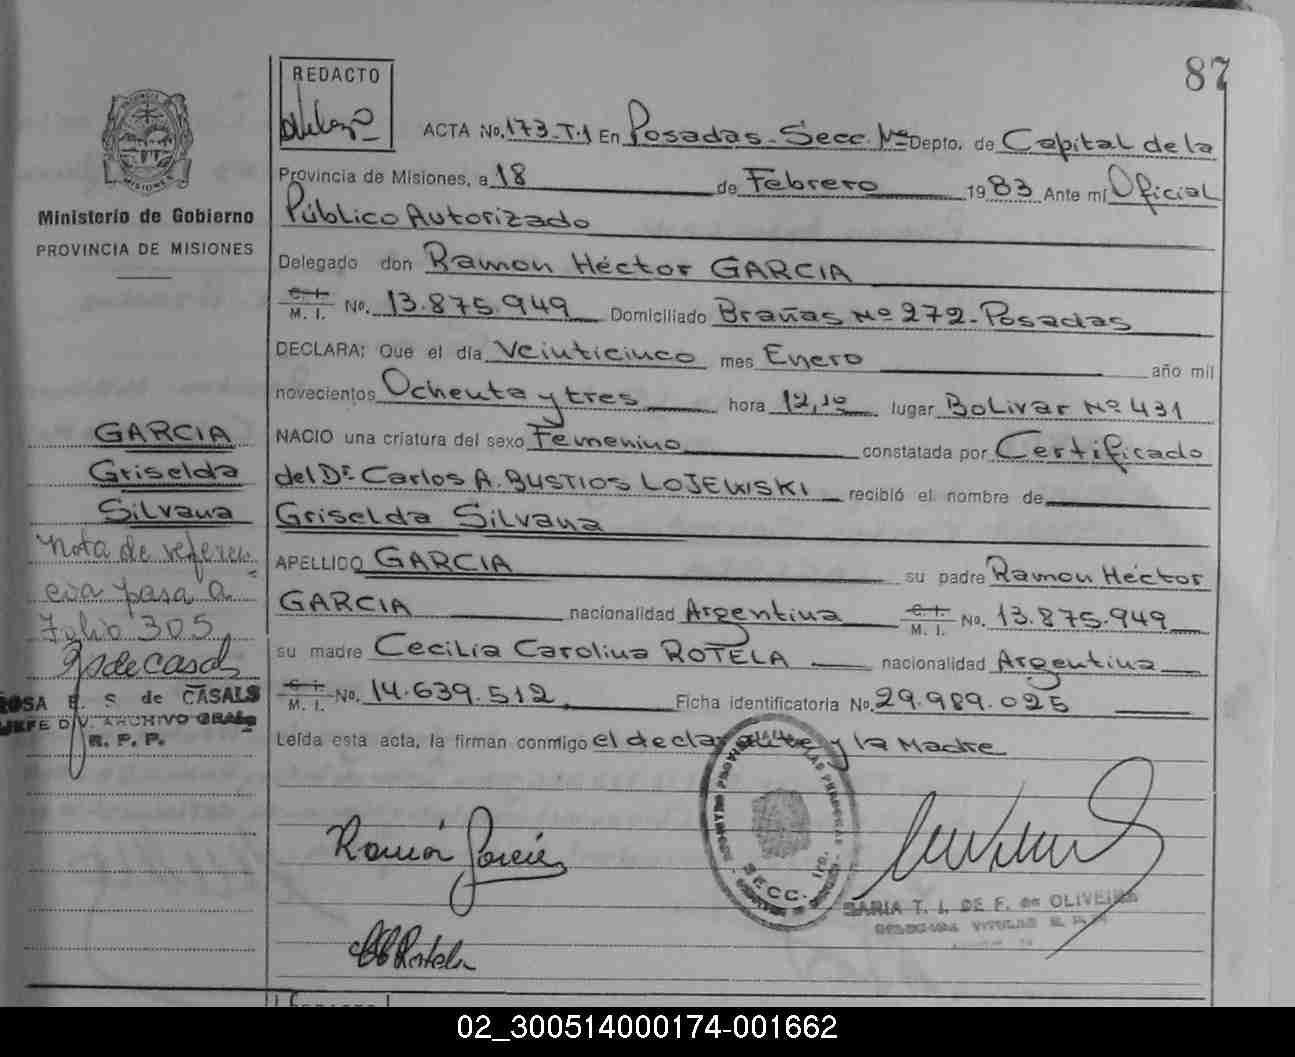 87
REDACTO
ACTA No. 173-T.1 En Posadas - Secc. 1ra Depto. de Capital de la
Provincia de Misiones, a 18 de Febrero 1983 Ante mí Oficial
Público Autorizado
Delegado don Ramon Héctor GARCIA
C. I.
M. I. No. 13.875.949 Domiciliado Brañas Nº 272 - Posadas
DECLARA: Que el día Veinticinco mes Enero año mil
novecientos Ochenta y tres hora 12,10 lugar Bolivar Nº 431
NACIO una criatura del sexo Femenino constatada por Certificado
del Dr. Carlos A. BUSTIOS LOJEWSKI recibió el nombre de
Griselda Silvana
APELLIDO GARCIA su padre Ramon Héctor
GARCIA nacionalidad Argentina C. I.
M. I. No. 13.875.949
su madre Cecilia Carolina ROTELA nacionalidad Argentina
C. I.
M. I. No. 14.639.512 Ficha identificatoria No. 29.989.025
Leída esta acta, la firman conmigo el declarante y la Madre
Ramón García
Rotela
SECC. 1ra.
MARIA T. I. DE F. de OLIVEIRA
PROVINCIA
MISIONES
Ministerio de Gobierno
PROVINCIA DE MISIONES
GARCIA
Griselda
Silvana
Nota de referen
cia pasa a
Folio 305
ROSA E. S. de CASALS
JEFE DIV. ARCHIVO GRAL.
R. P. P.
02_300514000174-001662